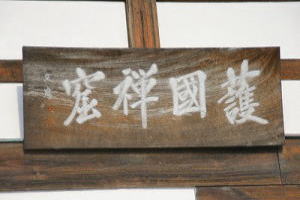 護國禅窟